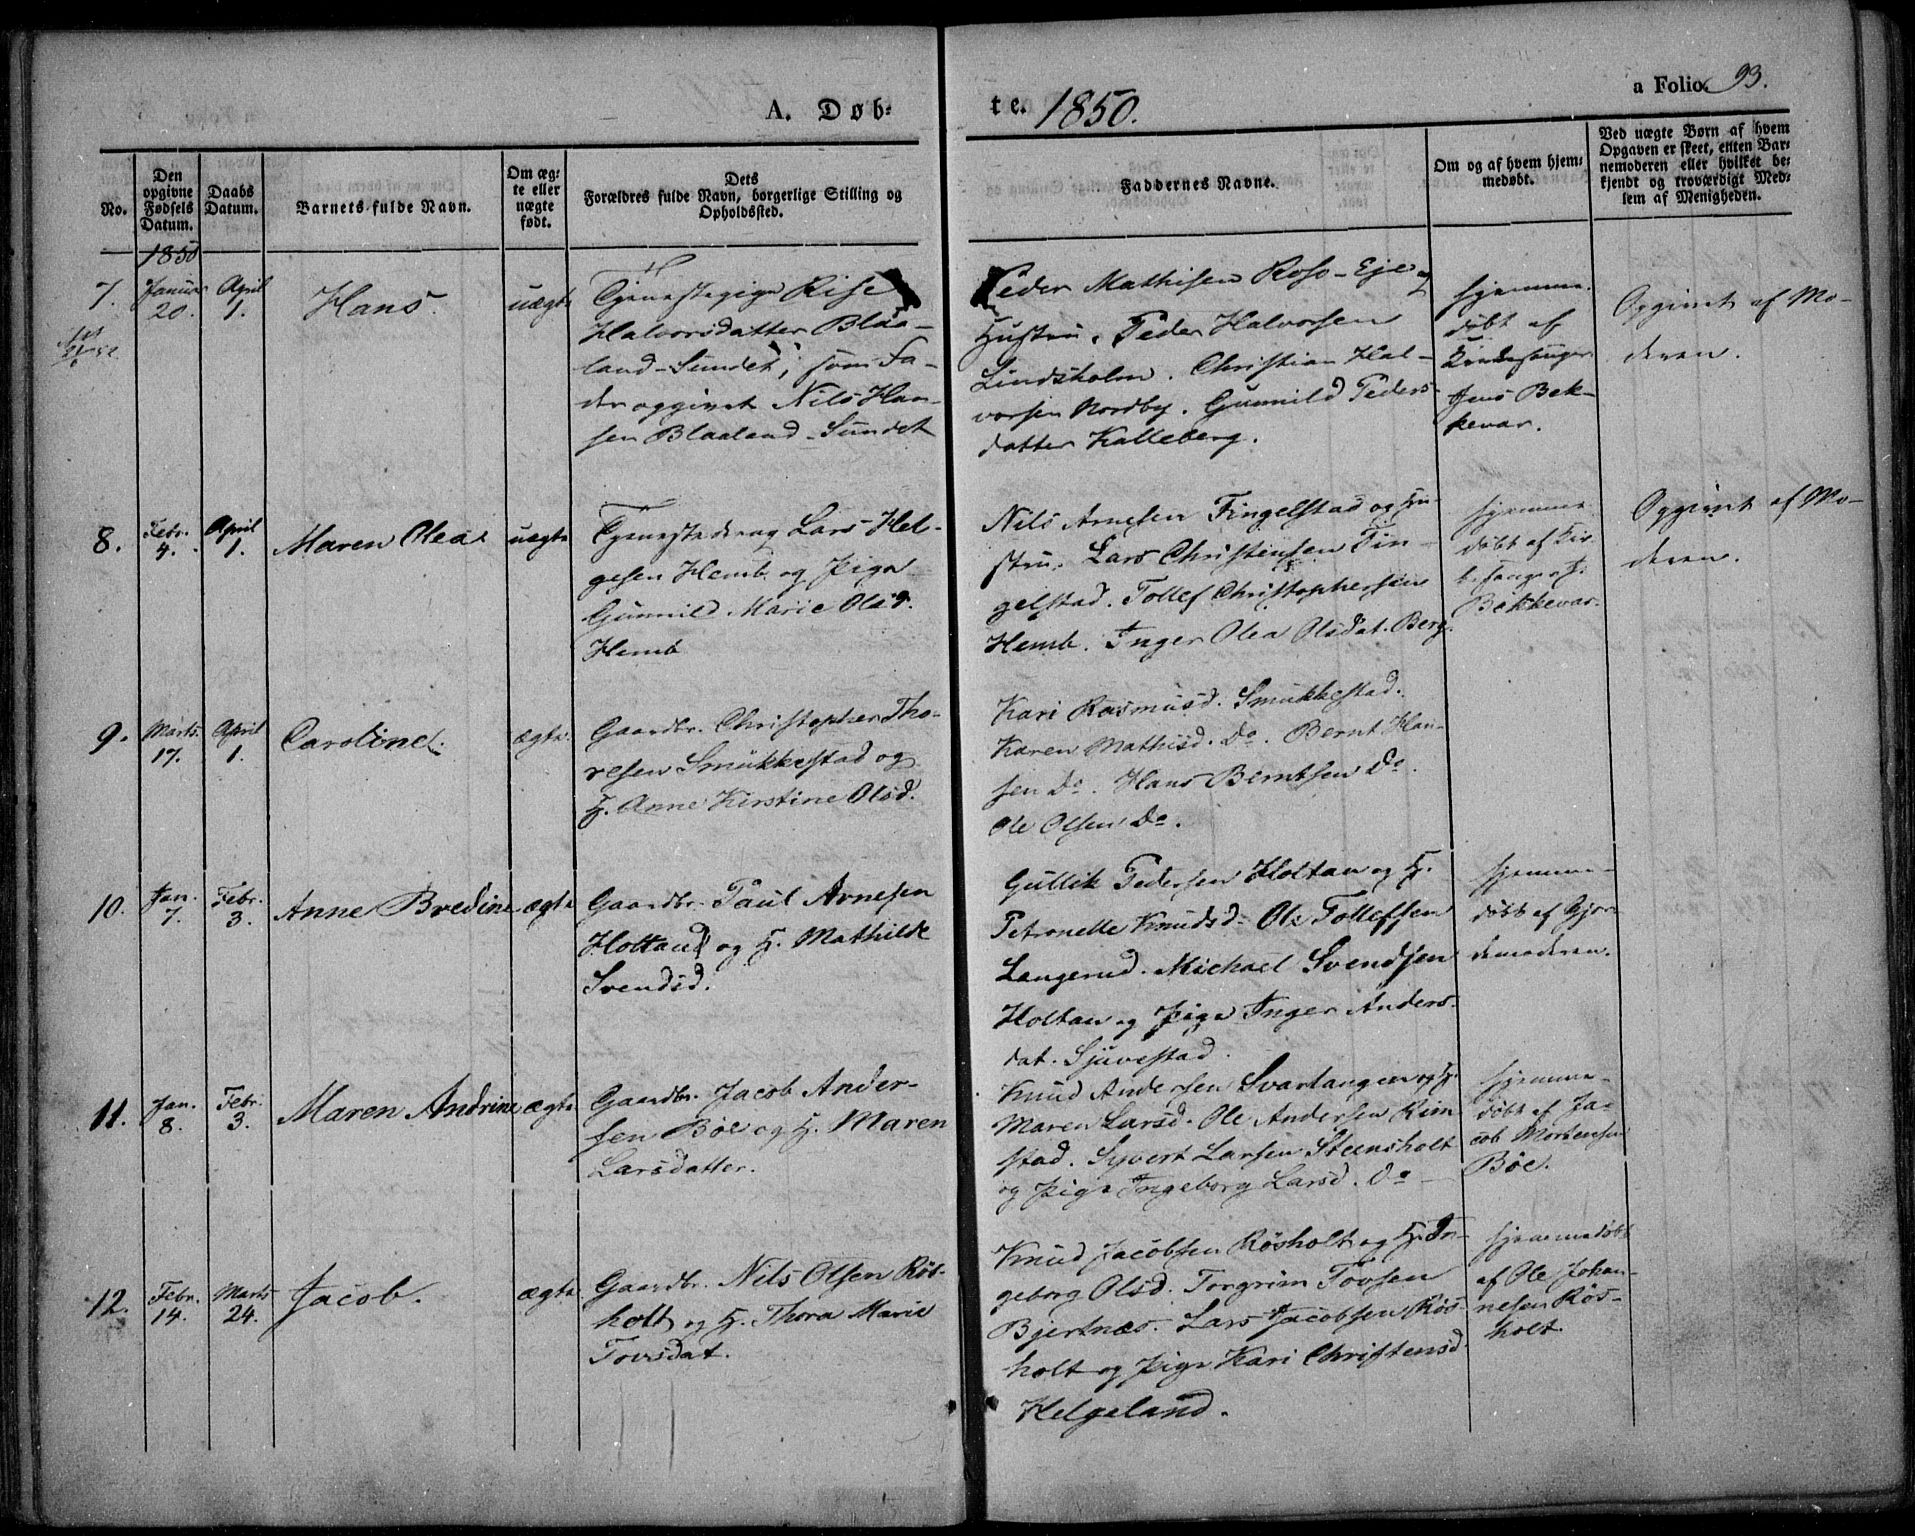 A. Døb-
te. 1850.
a Folio. 93.
No.
Den opgivne Fødsels Datum.
Daabs Datum.
Barnets fulde Navn.
Om æg-
te eller
uægte
født.
Dets
Forældres fulde Navn, borgerlige Stilling og
Opholdssted.
Faddernes Navne.
Om og af hvem hjem-
medøbt.
Ved uægte Børn af hvem
Opgaven er skeet, enten Bar-
nemoderen eller hvilket be-
kjendt og troværdigt Med-
lem af Menigheden.
1850
7.
Januar
20.
April
1.
Hans.
uægte
Tjenestepige Rise
Halvorsdatter Blaa-
land-Sundet; som Fa-
der opgivet Nils Han-
sen Blaaland-Sundet
Peder Mathisen Roso-Eje og
Hustru. Peder Halvorsen
Lindsholm. Christian Hal-
vorsen Nordby. Gunnild Peders-
datter Kalleberg.
hjemme-
døbt af
Kirkesanger
Jens Bek-
kevar.
Opgivet af Mo-
deren.
8.
Febr.
4.
April
1.
Maren Olea
uægte
Tjenestedreng Lars Hel-
gesen Hemb og Pige
Gunnild Marie Olsd.
Hemb
Nils Arnesen Fingelstad og Hu-
stru. Lars Christensen Fin-
gelstad. Tollef Christophersen
Hemb. Inger Olea Olsdat. Berg.
hjemme-
døbt af Kir-
kesanger J.
Bekkevar.
Opgivet af Mo-
deren.
9.
Marts
17.
April
1.
Caroline.
ægte.
Gaardbr. Christopher Tho-
resen Smukkestad og
H. Anne Kirstine Olsd.
Kari Rasmusd. Smukkestad.
Karen Mathisd. Do. Bernt Han-
sen Do. Hans Berntsen Do.
Ole Olsen Do.
10.
Jan.
7.
Febr.
3.
Anne Bredine
ægte
Gaardbr. Paul Arnesen
Holtan og H. Mathilde
Svendsd.
Gullik Pedersen Holtan og H.
Petronelle Knudsd. Ole Tollefsen
Langerud. Michael Svendsen
Holtan og Pige Inger Anders-
dat. Sjuvestad.
hjemme-
døbt af Gjor-
demoderen.
11.
Jan.
8.
Febr.
3.
Maren Andrine
ægte
Gaardbr. Jacob Ander-
sen Böe og H. Maren
Larsdatter.
Knud Andersen Svartangen og H.
Maren Larsd. Ole Andersen Rim
stad. Syvert Larsen Steensholt
og Pige Ingeborg Larsd. Do
hjemme-
døbt af Ja-
cob Mortensen
Böe.
12.
Febr.
14.
Marts
24.
Jacob.
ægte
Gaardbr. Nils Olsen Rös-
holt og H. Thora Marie
Tovsdat.
Knud Jacobsen Rösholt og H. In-
geborg Olsd. Torgrim Tovsen
Bjertnæs. Lars Jacobsen Rös-
holt og Pige Kari Christensd.
Helgeland.
hjemmedøbt
af Ole Johan-
nesen Rös-
holt.